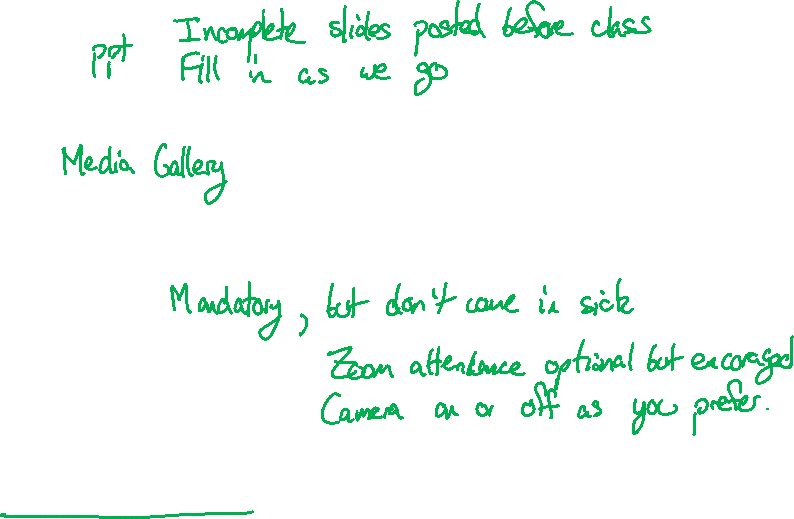 Incomplete slides posted before class
ppt Fill in as we go
Media Gallery
Mandatory, but don't come in sick
Zoom attendance optional but encoraged
Camera on or off as you prefer.